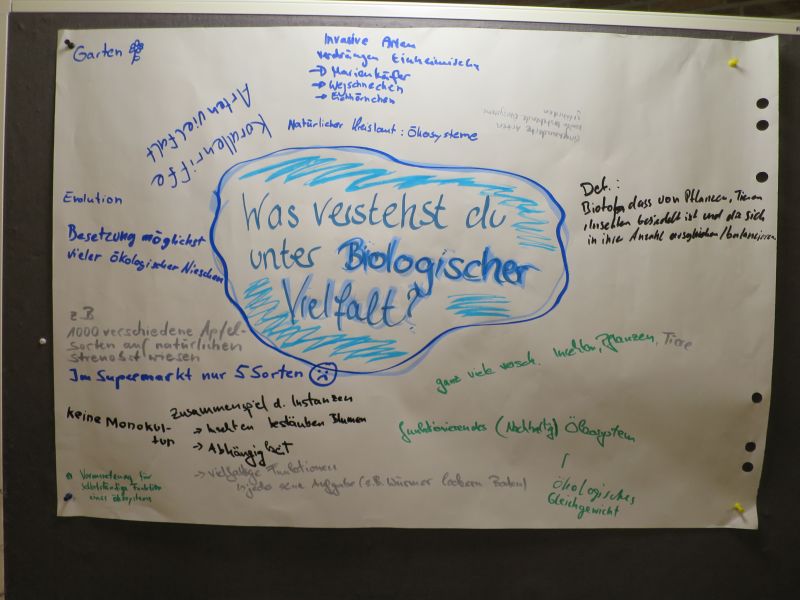 Garten
Invasive Arten
verdrängen Einheimische
→ Marienkäfer
→ Wegschnecken
→ Eichhörnchen
Artenvielfalt
Korallenriffe
Natürlicher Kreislauf: Ökosysteme
Evolution
Besetzung möglichst
vieler ökologischer Nieschen
Was verstehst du
unter Biologischer
Vielfalt?
Def.:
Biotop dass von Pflanzen, Tieren
Insekten besiedelt ist und da sich
in ihrer Anzahl ausgleichen/balancieren
z.B
1000 verschiedene Apfel-
sorten auf natürlichen
streuobst wiesen
Im Supermarkt nur 5 Sorten
ganz viele versch. Insekten, Pflanzen, Tiere
keine Monokul-
tur
Zusammenspiel d. Instanzen
→ Insekten bestäuben Blumen
→ Abhängigkeit
→ vielfältige Funktionen
jede seine Aufgabe (z.B. Würmer lockern Boden)
funktionierendes (Nachhaltig) Ökosystem
ökologisches
Gleichgewicht
Voraussetzung für
selbstständige Funktion
eines Ökosystems